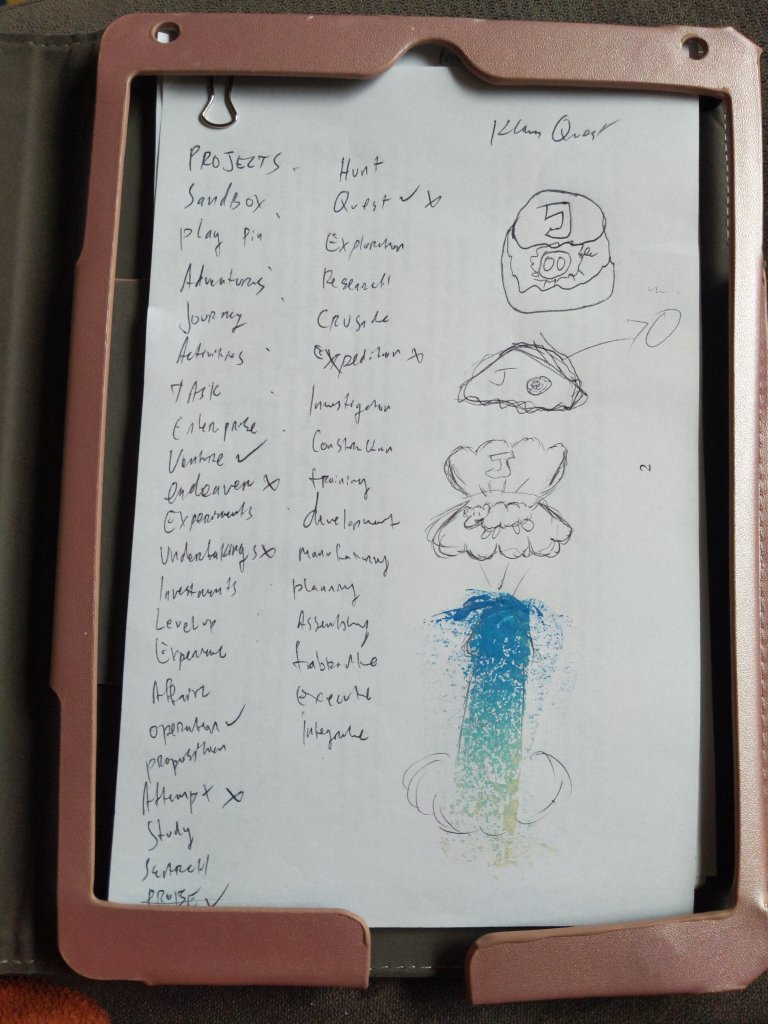 Quest
PROJECTS.
SandBox
play pin
Adventures
Journey
Activities
TASK
Enterprise
Venture ✓
endeaver x
Experiments
Undertakings x
Investments
Level up
Affairs
operation ✓
proposition
Attempt x
Study
Search
PROBE ✓
Hunt
Quest ✓ x
Exploration
Research
Crusade
Expedition x
Investigation
Construction
training
development
planning
Assembling
Execute
Integrate
J
J
J
2